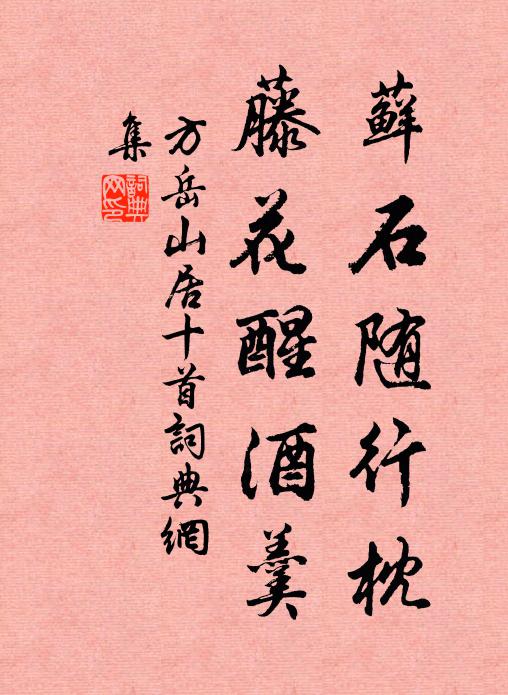 蘚石随行枕
藤花醒酒羹
方岳山居十首詞典網
集
詞典网印